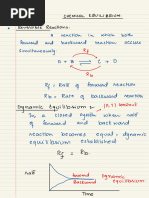 CHEMICAL EQUILIBRIUM:
Reversible Reactions:
A reaction in which both
forward and backward reaction occurs
simultaneously.
Rf
A ⇌ C
B D
Rb
Rf = Rate of forward reaction
Rb = Rate of backward reaction
Dynamic Equilibrium :- [P,T] constant
In a closed system when rate
of forward and backward
reaction becomes equal, dynamic
equilibrium established
Rf = Rb
rate
forward
Backward
Dynamic equilibrium
Time